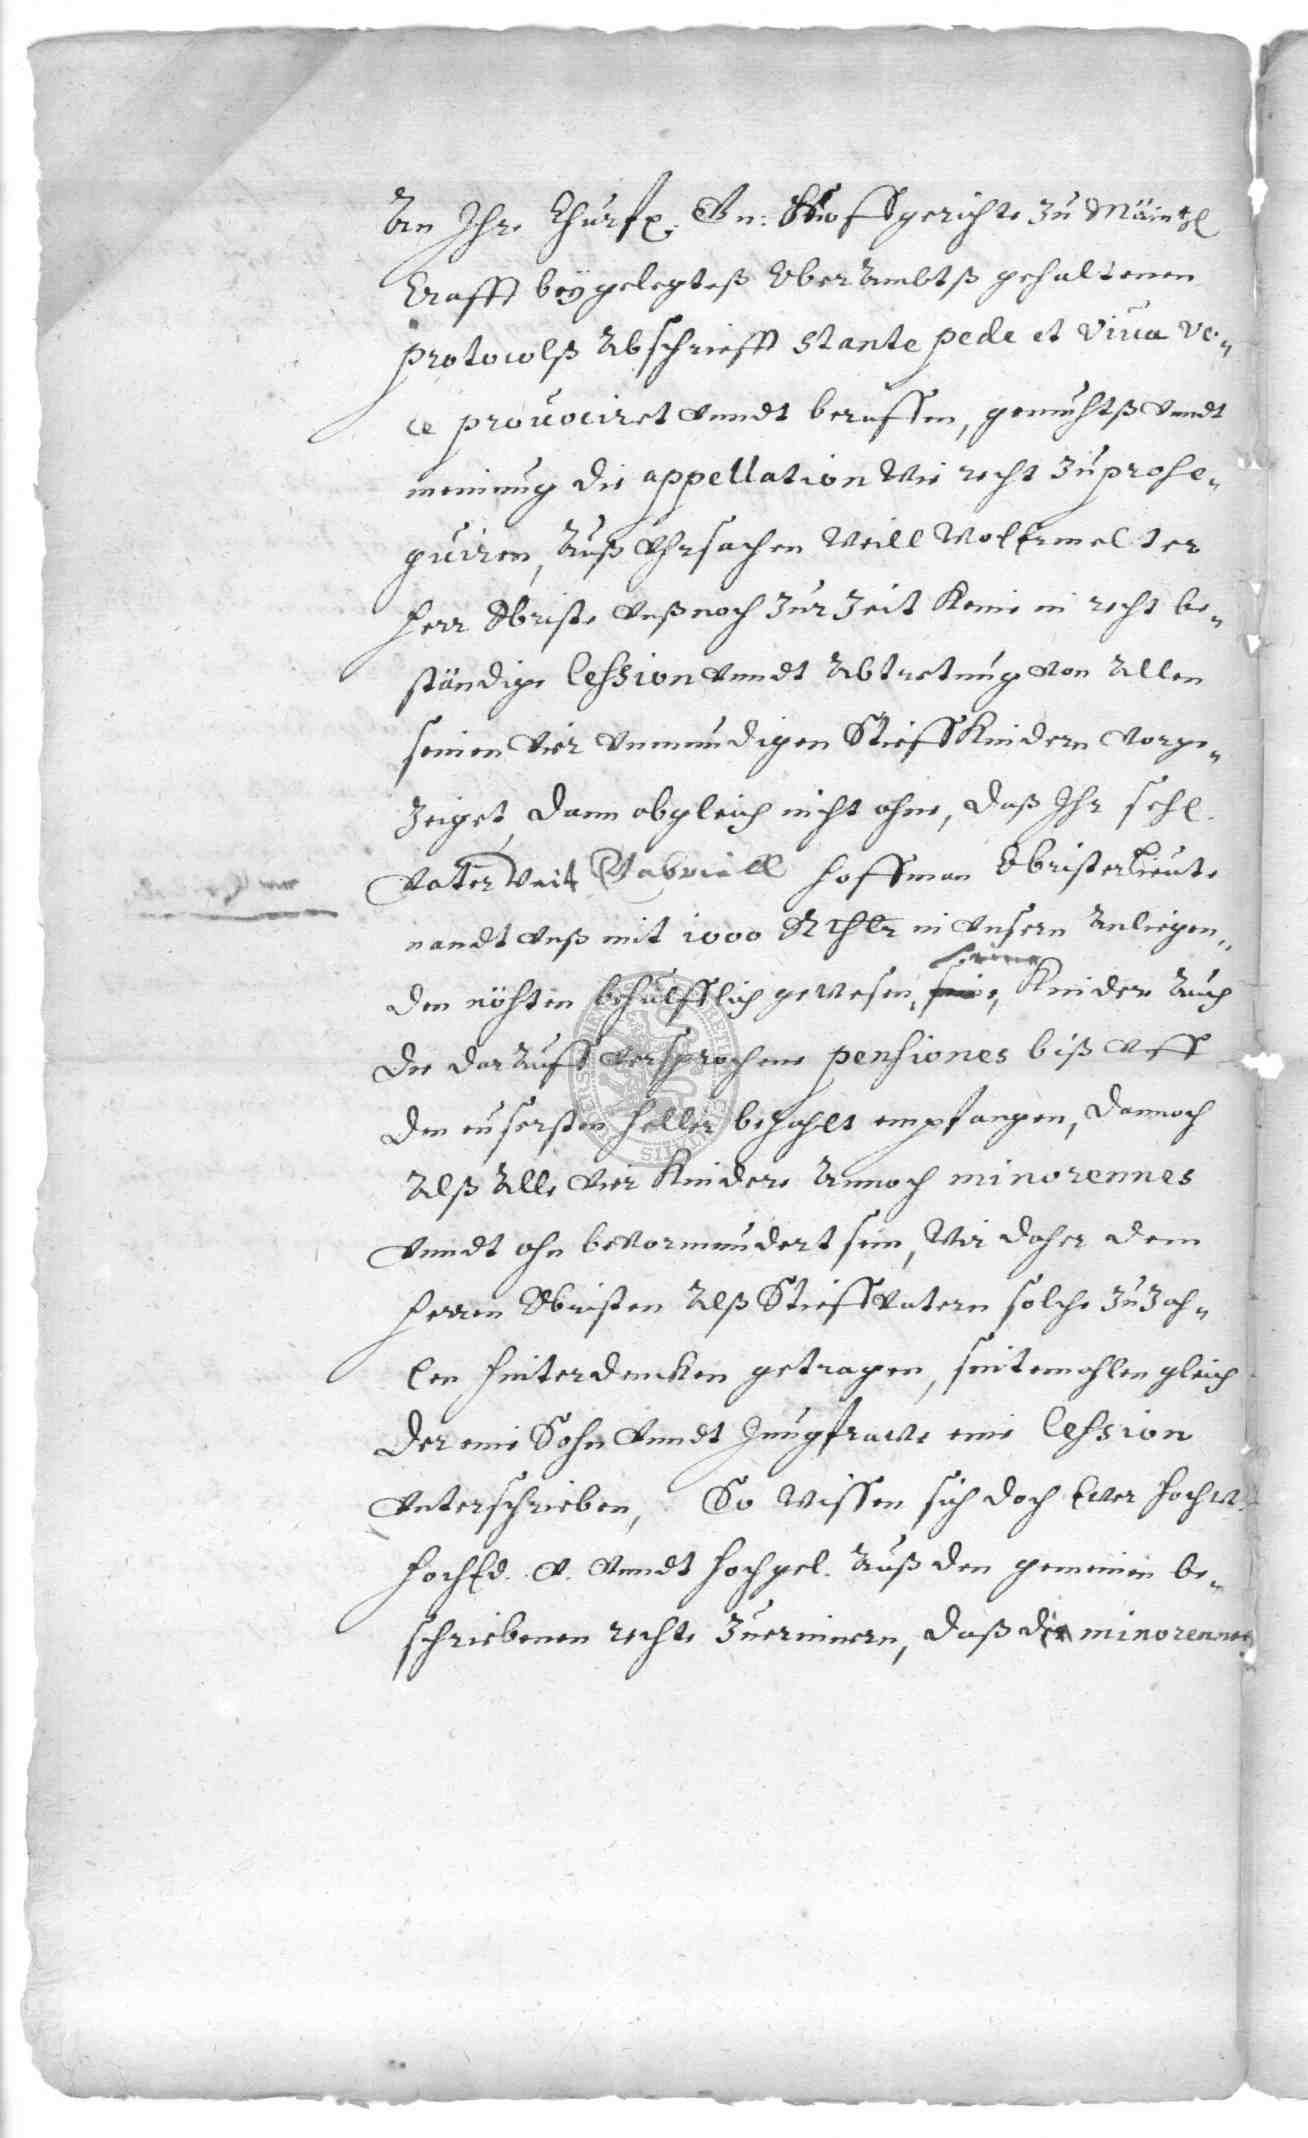 An Ihre Churfl. Gn: Hoffgerichte zu Mäintz
Crafft beÿgelegteß OberAmbtß gehaltenen
protocolß Abschrifft stante pede et viua vo„
ce prouociret vnndt beruffen, gemühtß vnndt
meinung die appellation wie recht zu prose„
quiren, Auß Vhrsachen weill wolermelter
Herr Obriste vnß noch zur Zeit keine in recht be„
ständige Cession vnndt Abtretung von Allen
seinen vier vnmundigen Stieffkindern vorge„
zeiget, dann obgleich nicht ohne, daß Ihr sehl.
Vater Veit Gabriell Hoffman Obristerlieute
nandt vnß mit 1000 Rthlr in vnsern Anliegen„
den nöhten behülfflich gewesen, seine Kinder Auch
die darAuff versprochene pensiones biß vff
den eusersten Heller bezahlt empfangen, dannoch
Alß Alle vier Kindere Annoch minorennes
vnndt ohn bevormundert sein, Wir daher dem
Herren Obristen Alß Stieffvatern solche zu zah„
len hinterdencken getragen, sintemahlen gleich
der eine Sohn vnndt Jungfrawe eine Cession
vnterschrieben, So wissen sich doch Ewer Hochw.
HochEd. v. vnndt Hochgel. Auß den gemeinen be„
schriebenen rechte zuerinnern, daß die minorennes